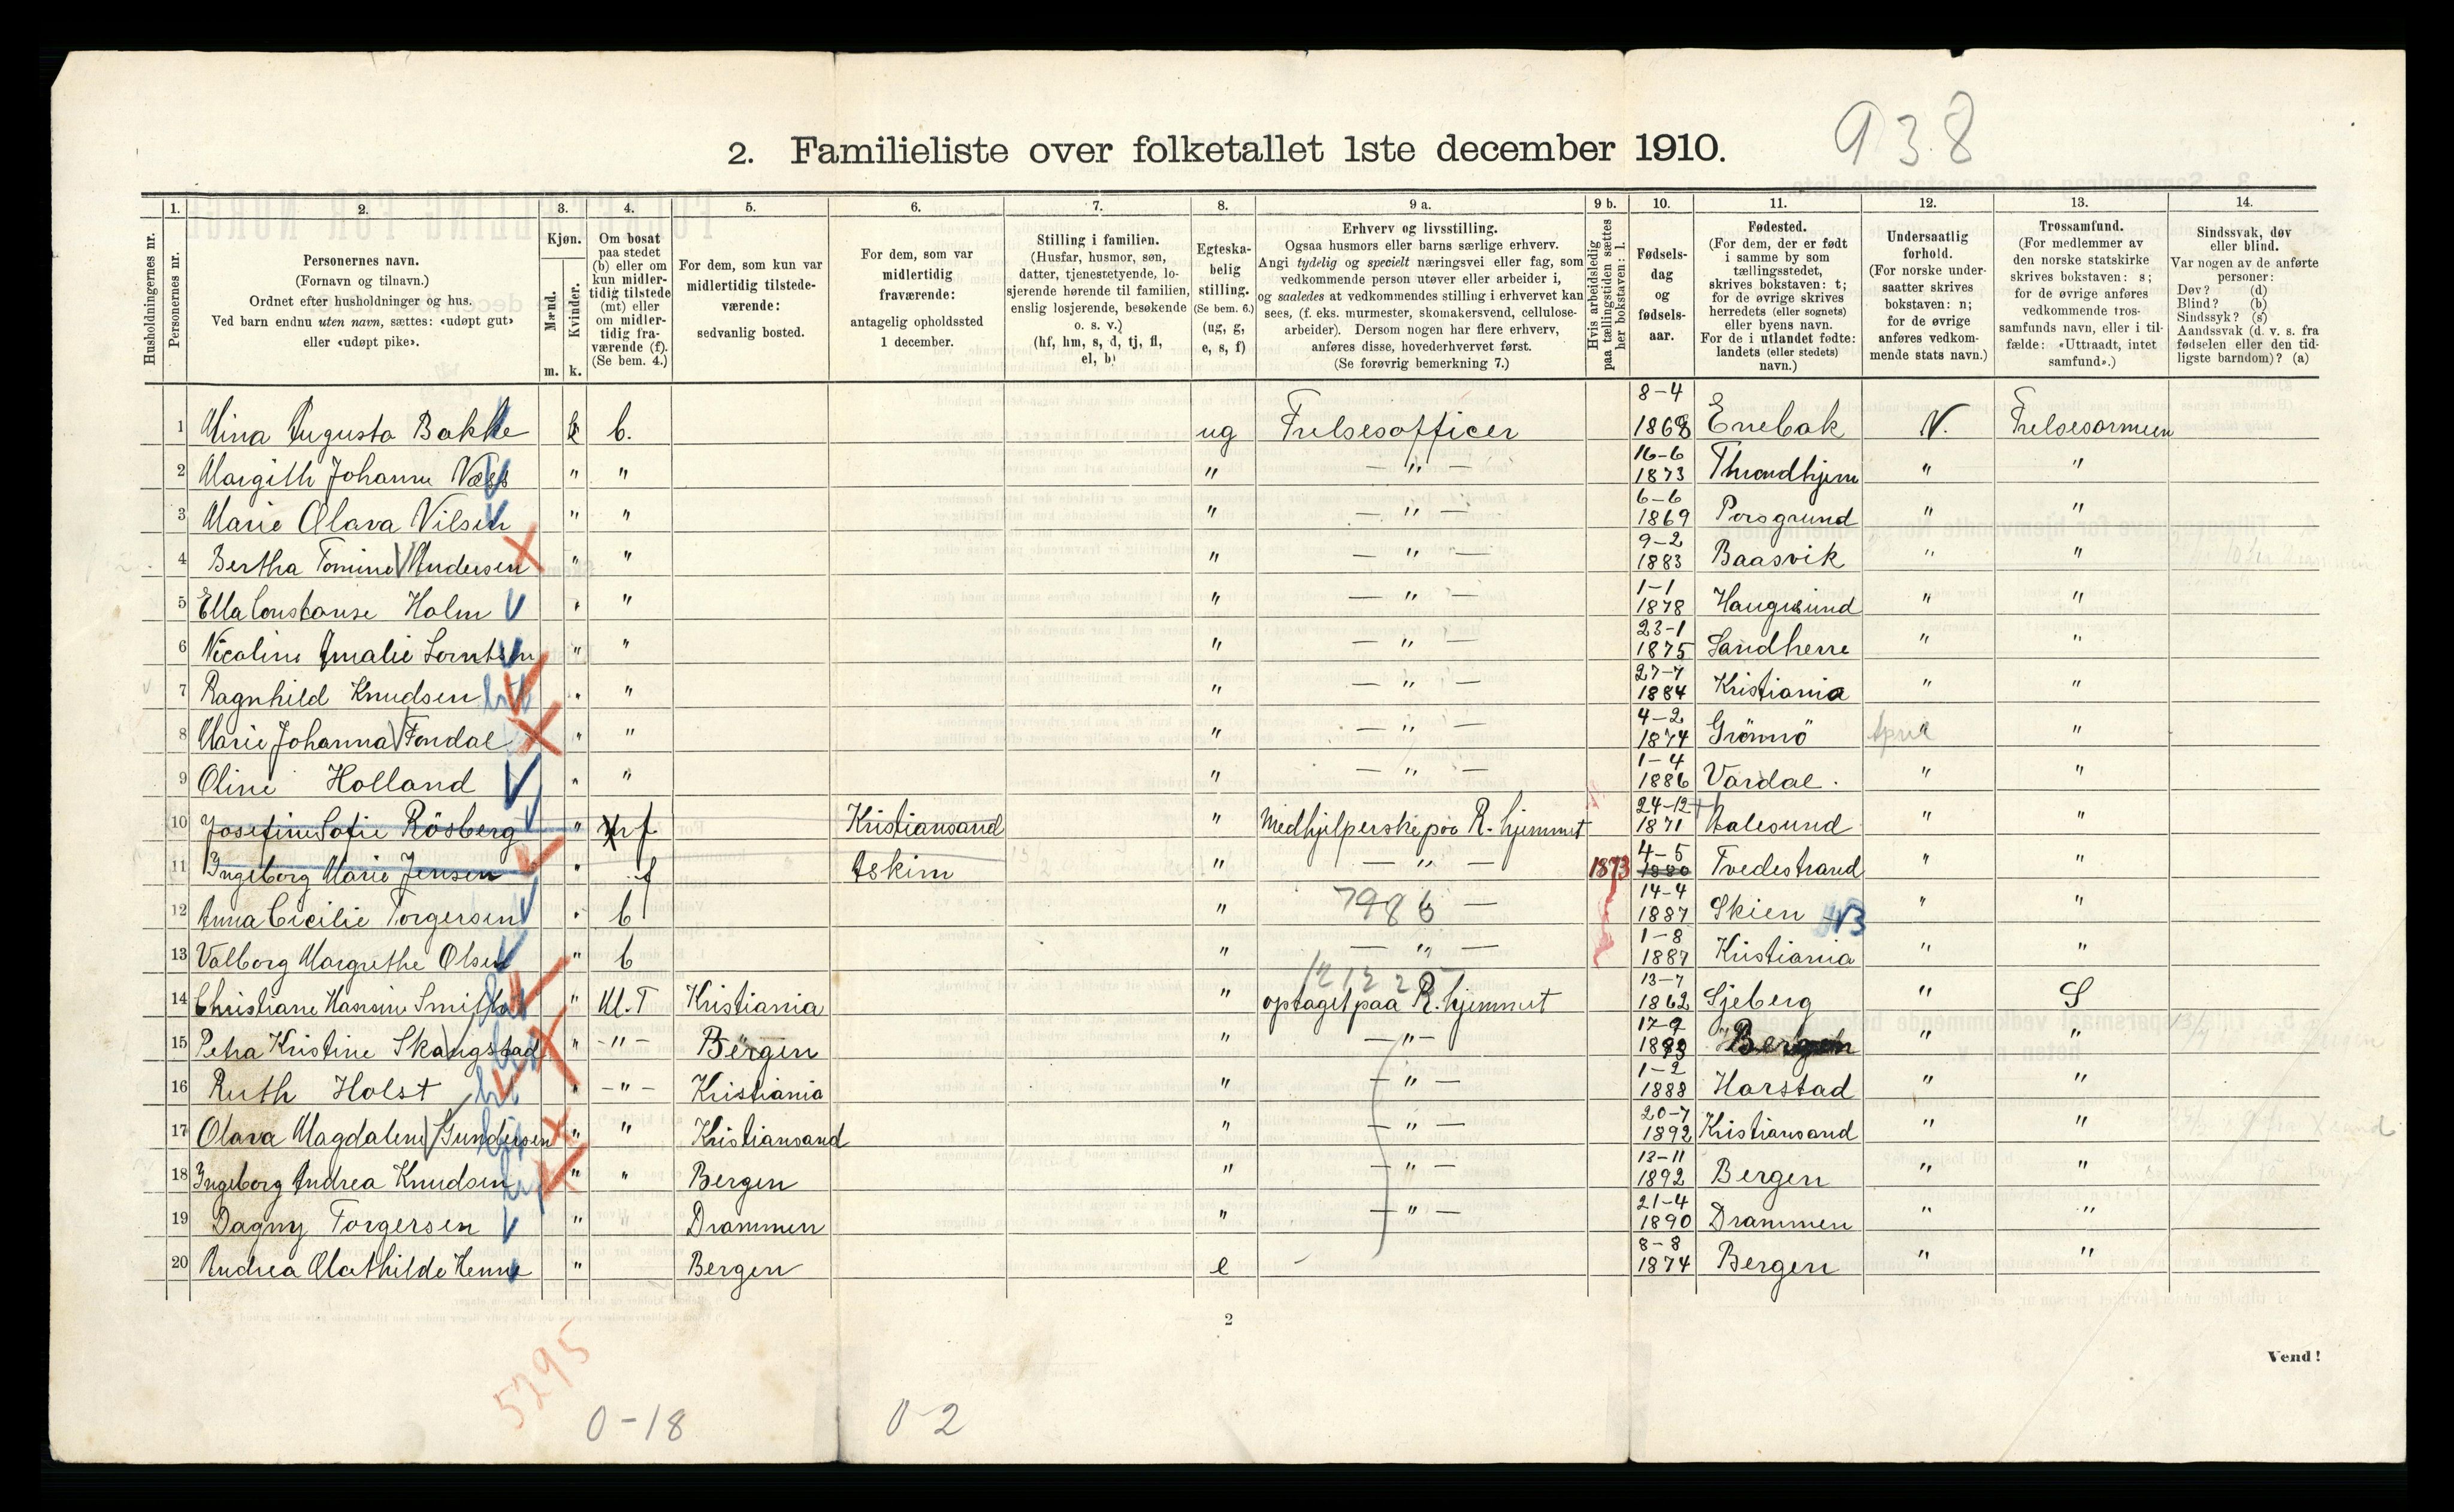 938
2. Familieliste over folketallet 1ste december 1910.
Husholdningernes nr.
1. Personernes nr.
2. Personernes navn.
(Fornavn og tilnavn.)
Ordnet efter husholdninger og hus.
Ved barn endnu uten navn, sættes: «udøpt gut»
eller «udøpt pike».
3. Kjøn.
Mænd. m.
Kvinder. k.
4. Om bosat
paa stedet
(b) eller om
kun midler-
tidig tilstede
(mt) eller
om midler-
tidig fra-
værende (f).
(Se bem. 4.)
5. For dem, som kun var
midlertidig tilstede-
værende:
sedvanlig bosted.
6. For dem, som var
midlertidig
fraværende:
antagelig opholdssted
1 december.
7. Stilling i familien.
(Husfar, husmor, søn,
datter, tjenestetyende, lo-
sjerende hørende til familien,
enslig losjerende, besøkende
o. s. v.)
(hf, hm, s, d, tj, fl,
el, b)
8. Egteska-
belig
stilling.
(Se bem. 6.)
(ug, g,
e, s, f)
9 a. Erhverv og livsstilling.
Ogsaa husmors eller barns særlige erhverv.
Angi tydelig og specielt næringsvei eller fag, som
vedkommende person utøver eller arbeider i,
og saaledes at vedkommendes stilling i erhvervet kan
sees, (f. eks. murmester, skomakersvend, cellulose-
arbeider). Dersom nogen har flere erhverv,
anføres disse, hovederhvervet først.
(Se forøvrig bemerkning 7.)
9 b. Hvis arbeidsledig
paa tællingstiden sættes
her bokstaven: l.
10. Fødsels-
dag
og
fødsels-
aar.
11. Fødested.
(For dem, der er født
i samme by som
tællingsstedet,
skrives bokstaven: t;
for de øvrige skrives
herredets (eller sognets)
eller byens navn.
For de i utlandet fødte:
landets (eller stedets)
navn.)
12. Undersaatlig
forhold.
(For norske under-
saatter skrives
bokstaven: n;
for de øvrige
anføres vedkom-
mende stats navn.)
13. Trossamfund.
(For medlemmer av
den norske statskirke
skrives bokstaven: s;
for de øvrige anføres
vedkommende tros-
samfunds navn, eller i til-
fælde: «Uttraadt, intet
samfund».)
14. Sindssvak, døv
eller blind.
Var nogen av de anførte
personer:
Døv? (d)
Blind? (b)
Sindssyk? (s)
Aandssvak (d. v. s. fra
fødselen eller den tid-
ligste barndom)? (a)
1 Mina Augusta Bakke k b. ug Frelsesofficer 8-4 1868 Enebak N. Frelsesarmeen
2 Margith Johanne Næss " " " — " — 16-6 1873 Throndhjem " "
3 Marie Olava Nilsen " " " — " — 6-6 1869 Porsgrund " "
4 Bertha Tomine Andersen " " " — " — 9-2 1883 Baasvik " "
5 Ella Constanse Holm " " " — " — 1-1 1878 Haugesund " "
6 Nicoline Amalie Lorntsen " " " — " — 23-1 1875 Sandherre " "
7 Ragnhild Knudsen " " " — " — 27-7 1884 Kristiania " "
8 Marie Johanna Fondal " " " — " — 4-2 1874 Grönnö " "
9 Oline Holland " " " — " — 1-4 1886 Vardal. " "
10 Josefine Sofie Rösberg " f Kristiansand " Medhjelperske paa R. hjemmet 24-12 1871 Aalesund " "
11 Ingeborg Marie Jensen " f Askim " — " — 1873 4-5 1880 Tvedestrand " "
12 Anna Cicilie Torgersen " b " 7986 — 14-4 1887 Skien " "
13 Valborg Margrethe Olsen " b " — " — 1-8 1887 Kristiania " "
14 Christiane Hansine Smith " M.T Kristiania " optaget paa R. hjemmet 13-7 1862 Sjeberg " S
15 Petra Kristine Skaugstad " -"- Bergen " —"— 17-9 Bergen " "
16 Ruth Holst " -"- Kristiania " — " — 1-2 1888 Harstad " "
17 Olava Magdalene Gundersen " " Kristiansand " — " — 20-7 1892 Kristiansand " "
18 Ingeborg Andrea Knudsen " " Bergen " — " — 13-11 1892 Bergen " "
19 Dagny Torgersen " " Drammen " — " — 21-4 1890 Drammen " "
20 Andrea Mathilde Henne " Bergen e - 8-8 1874 Bergen " "
2
Vend!
5295
0-18
0-2